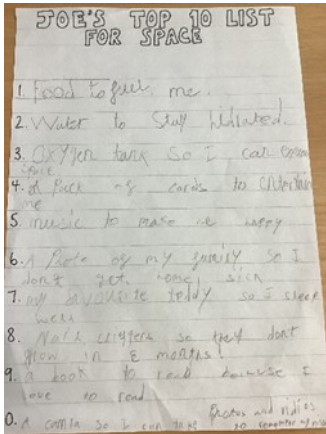 JOE'S TOP 10 LIST
FOR SPACE
1. Food to fuel me.
2. Water to Stay
3. Oxygen tank so I can
space
4. A Pack of cards to entertain
me
5. music to make me happy
6. A Photo of my family so I
dont get home sick
7. my favourite teddy so I sleep
well
8. Nail so they dont
grow in 6 months!
9. a book to read because I
love to read
0. A so I can take Photos and
to